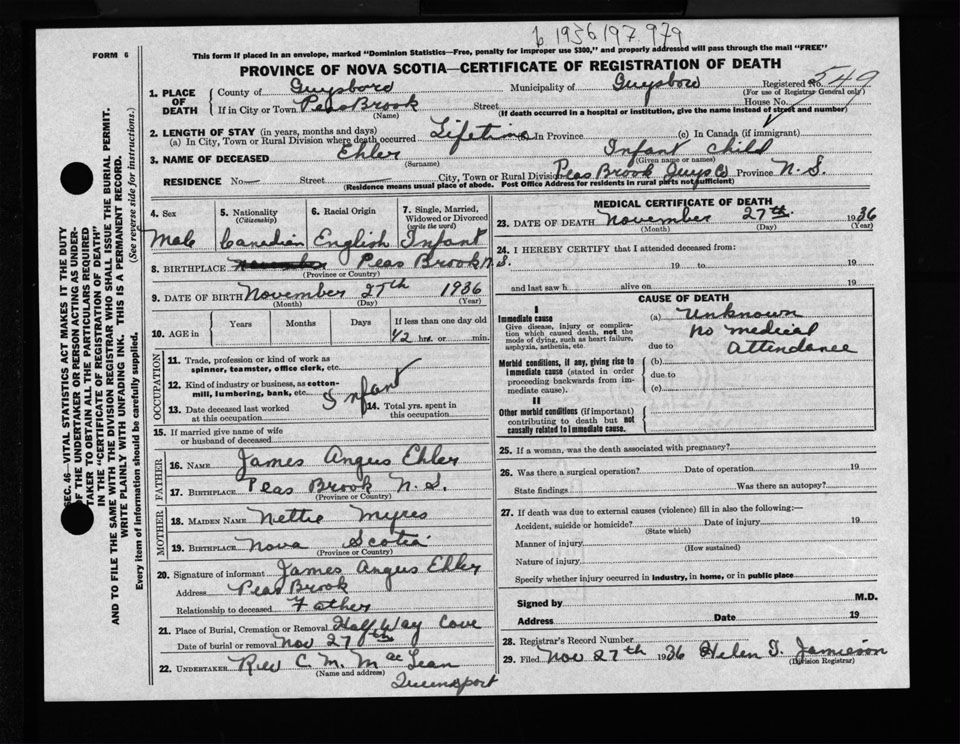 b 1936 197 979
FORM 6
This form if placed in an envelope, marked "Dominion Statistics—Free, penalty for improper use $300," and properly addressed will pass through the mail "FREE"
PROVINCE OF NOVA SCOTIA—CERTIFICATE OF REGISTRATION OF DEATH
1. PLACE OF DEATH
County of Guysboro Municipality of Guysboro Registered No. 549
(For use of Registrar General only)
If in City or Town Peas Brook Street House No.
(Name) (If death occurred in a hospital or institution, give the name instead of street and number)
2. LENGTH OF STAY (in years, months and days)
(a) In City, Town or Rural Division where death occurred Lifetime (b) In Province (c) In Canada (if immigrant)
3. NAME OF DECEASED Ehler Infant Child
(Surname) (Given name or names)
RESIDENCE No. Street City, Town or Rural Division Peas Brook Guys Co Province N.S.
(Residence means usual place of abode. Post Office Address for residents in rural parts not sufficient)
4. Sex
Male
5. Nationality
(Citizenship)
Canadian
6. Racial Origin
English
7. Single, Married, Widowed or Divorced
(write the word)
Infant
8. BIRTHPLACE November Peas Brook N.S.
(Province or Country)
9. DATE OF BIRTH November 27th 1936
(Month) (Day) (Year)
10. AGE in
Years Months Days If less than one day old
1/2 hrs. or min.
OCCUPATION
11. Trade, profession or kind of work as spinner, teamster, office clerk, etc.
12. Kind of industry or business, as cotton-mill, lumbering, bank, etc. Infant
13. Date deceased last worked at this occupation
14. Total yrs. spent in this occupation
15. If married give name of wife or husband of deceased
FATHER
16. NAME James Angus Ehler
17. BIRTHPLACE Peas Brook N.S.
(Province or Country)
MOTHER
18. MAIDEN NAME Nettie Myres
19. BIRTHPLACE Nova Scotia
(Province or Country)
20. Signature of informant James Angus Ehler
Address Peas Brook
Relationship to deceased Father
21. Place of Burial, Cremation or Removal Half Way Cove
Date of burial or removal Nov 27th
22. UNDERTAKER Rev C. M. MacLean
(Name and address)
Queensport
MEDICAL CERTIFICATE OF DEATH
23. DATE OF DEATH November 27th 1936
(Month) (Day) (Year)
24. I HEREBY CERTIFY that I attended deceased from:
19 to 19
and last saw h alive on 19
CAUSE OF DEATH
I
Immediate cause
Give disease, injury or complication which caused death, not the mode of dying, such as heart failure, asphyxia, asthenia, etc.
(a) Unknown
No medical
due to Attendance
Morbid conditions, if any, giving rise to immediate cause (stated in order proceeding backwards from immediate cause).
(b)
due to
(c)
II
Other morbid conditions (if important) contributing to death but not causally related to immediate cause.
25. If a woman, was the death associated with pregnancy?
26. Was there a surgical operation? Date of operation 19
State findings Was there an autopsy?
27. If death was due to external causes (violence) fill in also the following:—
Accident, suicide or homicide? Date of injury 19
(State which)
Manner of injury
(How sustained)
Nature of injury
Specify whether injury occurred in industry, in home, or in public place
Signed by M.D.
Address Date 19
28. Registrar's Record Number
29. Filed Nov 27th 1936 Helen T. Jamieson
(Division Registrar)
SEC. 46—VITAL STATISTICS ACT MAKES IT THE DUTY
OF THE UNDERTAKER OR PERSON ACTING AS UNDER-
TAKER TO OBTAIN ALL THE PARTICULARS REQUIRED
IN THE "CERTIFICATE OF REGISTRATION OF DEATH"
AND TO FILE THE SAME WITH THE DIVISION REGISTRAR WHO SHALL ISSUE THE BURIAL PERMIT.
WRITE PLAINLY WITH UNFADING INK. THIS IS A PERMANENT RECORD.
Every item of information should be carefully supplied. (See reverse side for instructions.)